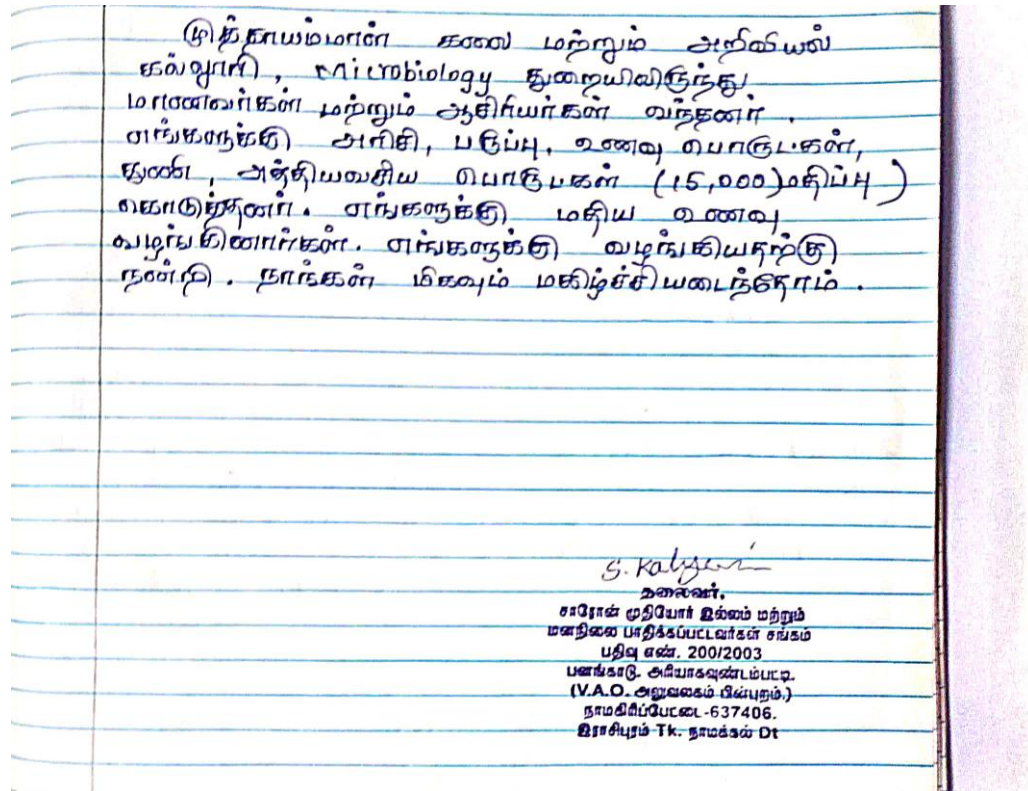 முத்தாயம்மாள் கலை மற்றும் அறிவியல்
கல்லூரி, Microbiology துறையிலிருந்து
மாணவர்கள் மற்றும் ஆசிரியர்கள் வந்தனர்.
எங்களுக்கு அரிசி, பருப்பு, உணவு பொருட்கள்,
துணி, அத்தியவசிய பொருட்கள் (15,000)மதிப்பு)
கொடுத்தனர். எங்களுக்கு மதிய உணவு
வழங்கினார்கள். எங்களுக்கு வழங்கியதற்கு
நன்றி. நாங்கள் மிகவும் மகிழ்ச்சியடைந்தோம்.
தலைவர்.
சாரோன் முதியோர் இல்லம் மற்றும்
மனநிலை பாதிக்கப்பட்டவர்கள் சங்கம்
பதிவு எண். 200/2003
பனங்காடு. அரியாகவுண்டம்பட்டி.
(V.A.O. அலுவலகம் பின்புறம்.)
நாமகிரிப்பேட்டை-637406.
இராசிபுரம் Tk. நாமக்கல் Dt